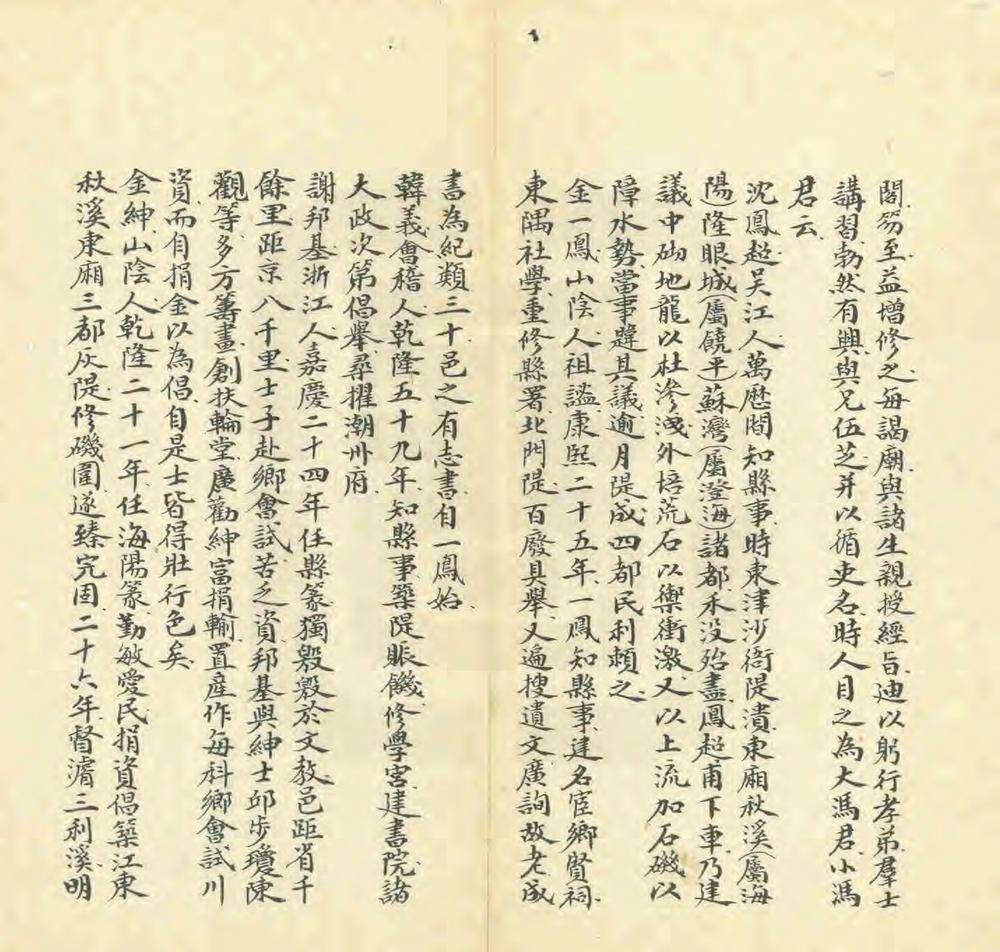 閣笏至益增修之每謁廟與諸生親授經旨迪以躬行孝弟羣士
講習勃然有興與兄伍芝并以循吏名時人目之為大馮君小馮
君云
沈鳳超吳江人萬歷間知縣事時東津沙衙隄潰東廂秋溪(屬海
陽)隆眼城(屬饒平)蘇灣(屬澄海)諸都禾没殆盡鳳超甫下車乃建
議中砌地龍以杜滲洩外培荒石以禦衝激又以上流加石磯以
障水勢當事韙其議逾月隄成四都民利賴之
金一鳳山陰人祖謐康熙二十五年一鳳知縣事建名宦鄉賢祠
東隅社學重修縣署北門隄百廢具舉又遍搜遺文廣詢故老成
書為紀類三十邑之有志書自一鳳始
韓義會稽人乾隆五十九年知縣事築隄賑饑修學宮建書院諸
大政次第倡舉尋擢潮州府
謝邦基浙江人嘉慶二十四年任縣篆獨毅毅於文教邑距省千
餘里距京八千里士子赴鄉會試苦之資邦基與紳士邱步瓊陳
觀等多方籌畫創扶輪堂廣勸紳富捐輸置産作每科鄉會試川
資而自捐金以為倡自是士皆得壯行色矣
金紳山陰人乾隆二十一年任海陽篆勤敏愛民捐資倡築江東
秋溪東廂三都灰隄修磯圍遂臻完固二十六年督濬三利溪明